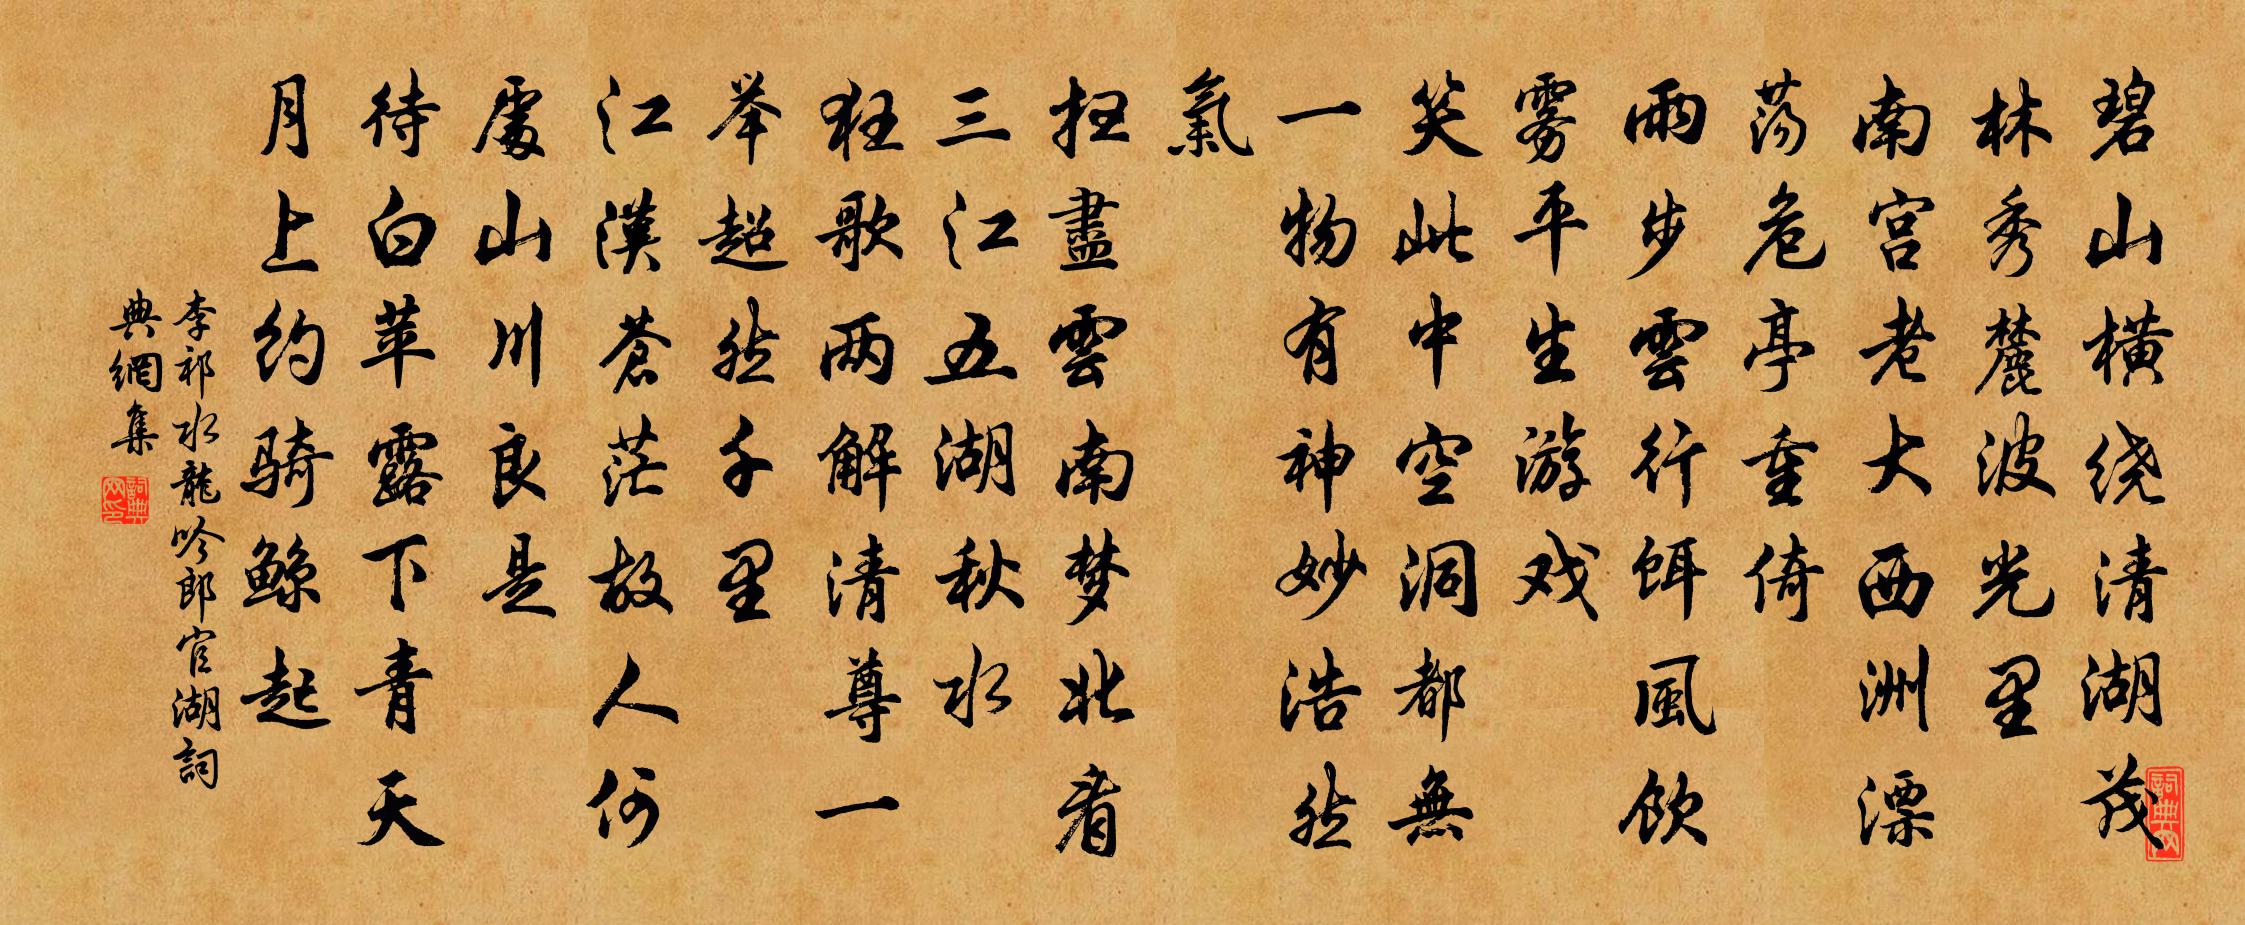 碧山横绕清湖茂
林秀麓波光里
南宫老大西洲漂
荡危亭重倚
雨步雲行饵風飲
雾平生游戏
笑此中空洞都無
一物有神妙浩然
氣
扫盡雲南梦北看
三江五湖秋水
狂歌两解清尊一
举超然千里
江漢蒼茫故人何
處山川良是
待白苹露下青天
月上约骑鲸起
李祁水龍吟郎官湖詞
典網集
詞典网
詞典网印